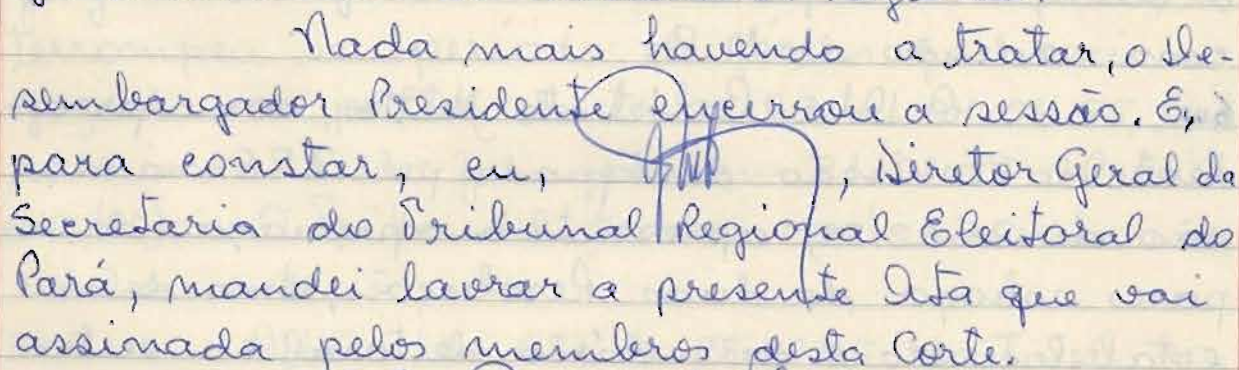 Nada mais havendo a tratar, o De-
sembargador Presidente encerrou a sessão. E,
para constar, eu, , Diretor Geral da
Secretaria do Tribunal Regional Eleitoral do
Pará, mandei lavrar a presente Ata que vai
assinada pelos membros desta Corte.